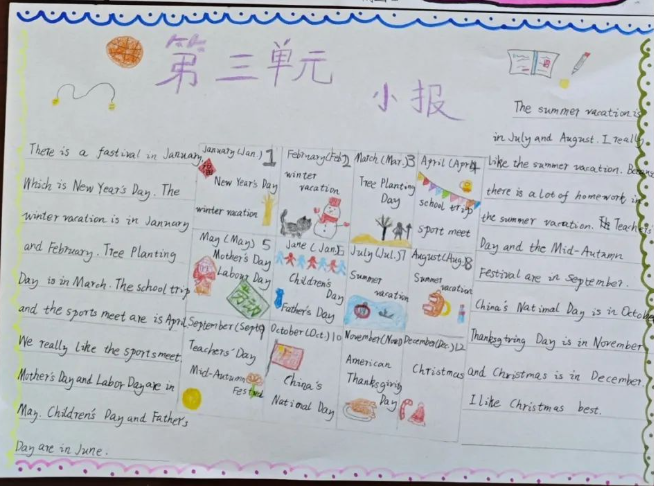 第三单元
小报
There is a fastival in January,
Which is New Year's Day. The
winter vacation is in January
and February. Tree Planting
Day is in March. The school trip
and the sports meet are is April.
We really like the sports meet.
Mother's Day and Labor Day are in
May. Children's Day and Father's
Day are in June.
January (Jan.) 1
New Year's Day
winter vacation
February (Feb.) 2
winter
vacation
March (Mar.) 3
Tree Planting
Day
April (Apr.) 4
school trip
sport meet
May (May) 5
Mother's Day
Labour Day
劳动
Jane (Jan.) 6
Children's
Day
Father's Day
July (Jul.) 7
Summer
vacation
August (Aug.) 8
Summer
vacation
September (Sept) 9
Teachers' Day
Mid-Autumn
Festival
October (Oct.) 10
China's
National Day
November (Nov.)
American
Thanksgiving
Day
December (Dec.) 12
Christmas
The summer vacation is
in July and August. I really
like the summer vacation.
there is a lot of homework in
the summer vacation. Teachers'
Day and the Mid-Autumn
Festival are in September.
China's National Day is in October
Thanksgiving Day is in November
and Christmas is in December.
I like Christmas best.